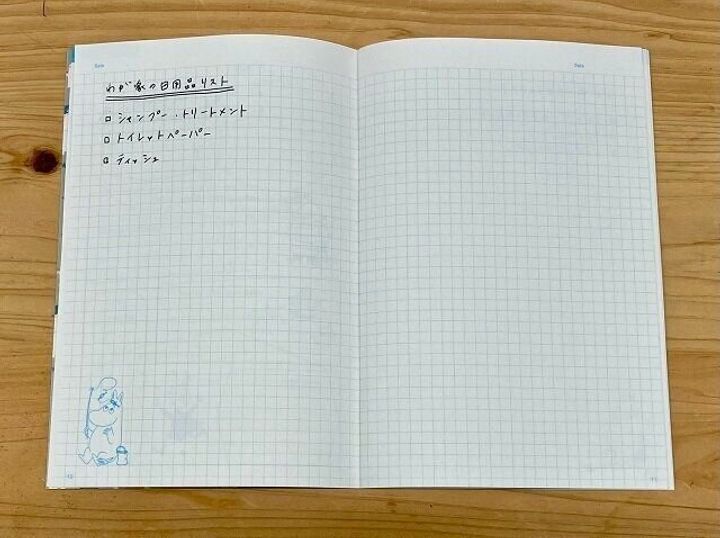 Date
Date
わが家の日用品リスト
□ シャンプー・トリートメント
□ トイレットペーパー
□ ティッシュ